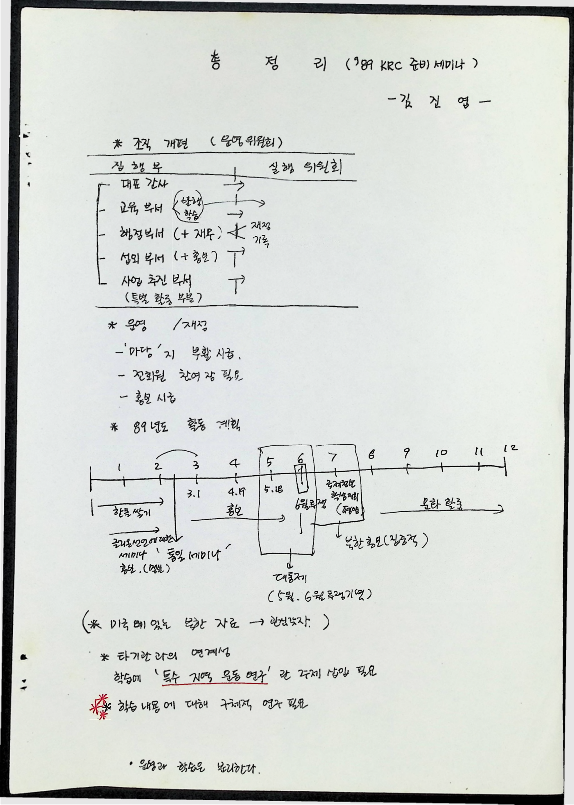 총 정 리 ('89 KRC 준비 세미나)
- 김 진 엽 -
* 조직 개편 (운영위원회)
집행부 실행 위원회
대표 간사 →
교육 부서 (학습) →
행정부서 (+ 재무) 재정 기록
섭외 부서 (+ 홍보)
사업 추진 부서
(특별 활동 부분)
* 운영 /재정
- '마당' 지 부활 시급.
- 전회원 참여 장 필요
- 홍보 시급
* 89년도 활동 계획
1 2 3 4 5 6 7 8 9 10 11 12
3.1 4.19 5.18 6월투쟁
한글 쓰기 홍보 문화 활동
세미나 '통일 세미나'
북한 홍보 (집중적)
대동제
(5월. 6월 투쟁기념)
(* 미국에 있는 북한 자료 →)
* 타기관과의 연계성
학습에 '특수 지역 운동 연구' 란 주제 삽입 필요
* 학습 내용에 대해 구체적 연구 필요
· 운영과 학습은 분리한다.